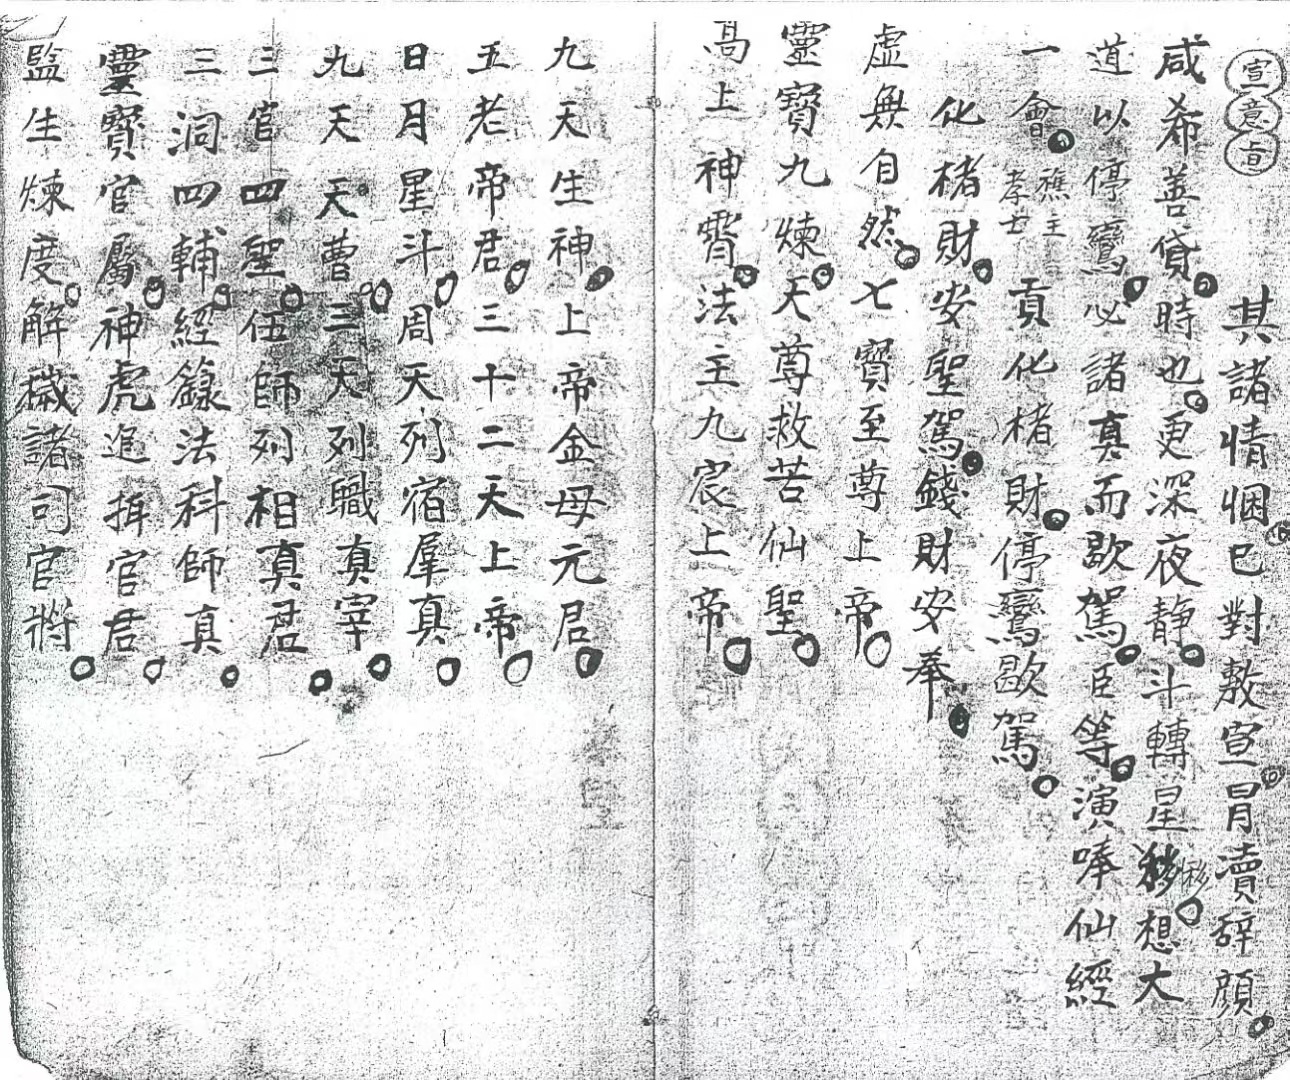 宣意白
其諸情悃已對敷宣冐瀆辞顔
咸希善貸時也更深夜静斗轉星移想大
道以停鸞必諸真而歇駕臣等演唪仙經
一會醮主孝士貢化楮財停鸞歇駕
化楮財安聖駕錢財安奉
虛無自然七寶至尊上帝
靈寶九煉天尊救苦仙聖
高上神霄法主九宸上帝
九天生神上帝金母元君
五老帝君三十二天上帝
日月星斗周天列宿羣真
九天天曹三天列職真宰
三官四聖伍師列相真君
三洞四輔經籙法科師真
靈寶官屬神虎追攝官君
監生煉度解穢諸司官將